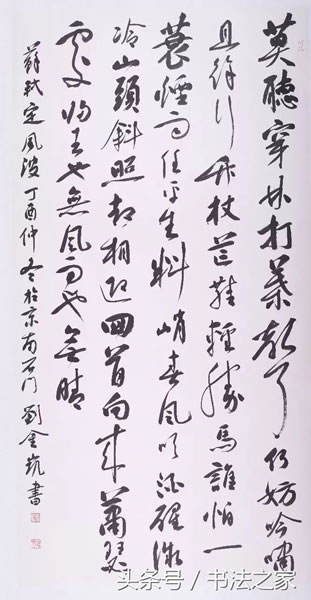 莫聽穿林打葉聲何妨吟嘯
且徐行竹杖芒鞋輕勝馬誰怕一
蓑煙雨任平生料峭春風吹酒醒微
冷山頭斜照却相迎回首向來蕭瑟
處歸去也無風雨也無晴
蘇軾定風波丁酉仲冬於京南石門劉金凱書
头条号 / 书法之家